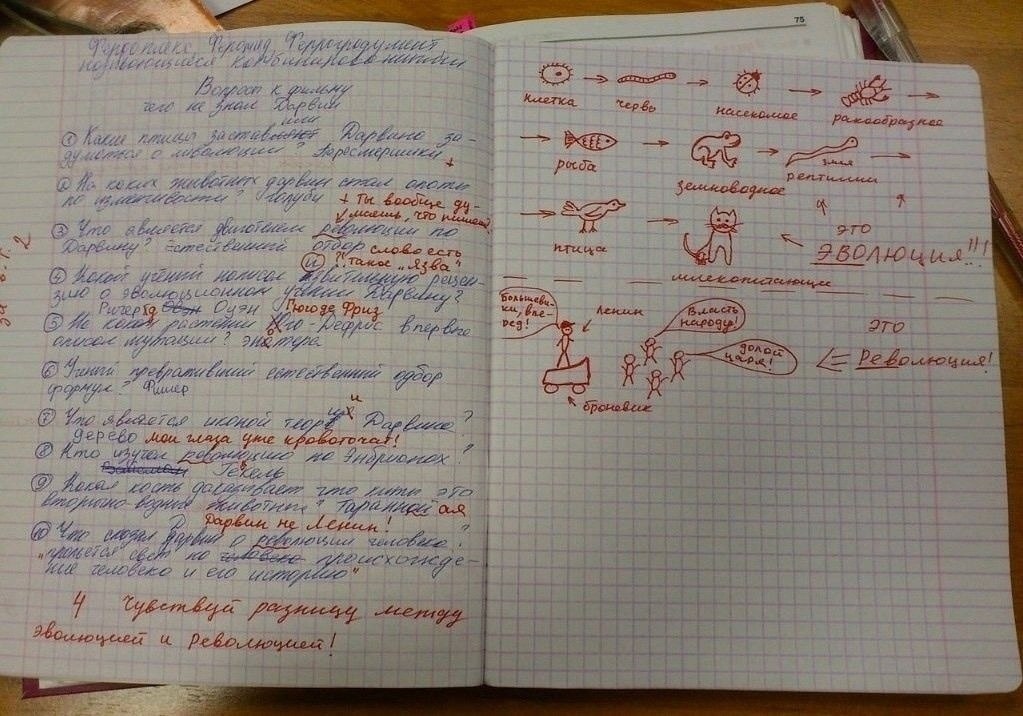 75
Вопрос к фильму
чего не знал Дарвин
① Какие птицы заставили Дарвина за-
думаться о
+
② На каких животных дарвин стал опыты
по изменчивости? голуби
+ ты вообще ду-
маешь, что пишешь?
③ Что является двигателем революции по
Дарвину? естественный отбор
слово есть
такое "язва"
④ Какой учёный написал рецен-
зию о эволюционном учении Дарвину?
Ричард Оуэн
Гюго де Фриз
⑤ На каком растении Гюго-Дефрис впервые
описал мутации? энотера
⑥ Учёный превративший естественный одбор
формул? Фишер
⑦ Что является иконой теории Дарвина?
дерево мои глаза уже кровоточат!
⑧ Кто изучал революцию по Энбрионах?
Геккель
⑨ Какая кость доказывает что киты это
вторично-водные животные? таранная
Дарвин не Ленин!
⑩ Что сказал Дарвин о революции человека?
"прольётся свет на человека происхожде-
ние человека и его историю"
4 Чувствуй разницу между
эволюцией и революцией!
клетка
червь
насекомое
ракообразное
рыба
земноводное
змея
рептилии
птица
млекопитающие
это
ЭВОЛЮЦИЯ!!!
Большеви-
ки, впе-
рёд!
ленин
Власть
народу!
долой
царя!
броневик
это
Революция!